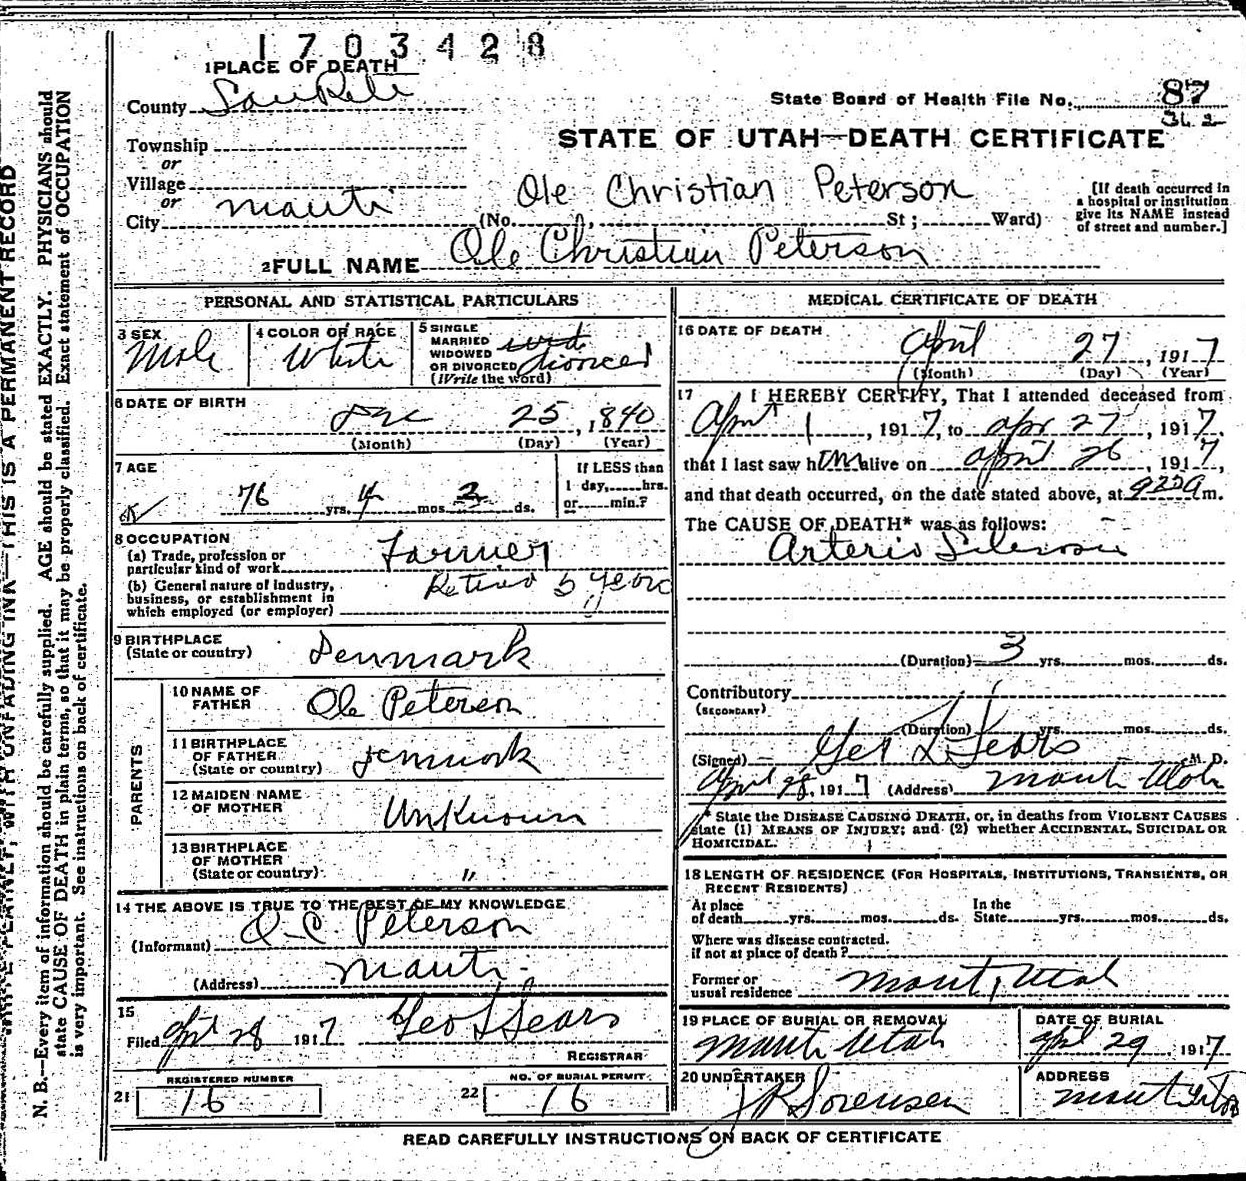 1703428
1 PLACE OF DEATH
County SanPete
State Board of Health File No. 87
362
STATE OF UTAH—DEATH CERTIFICATE
Township
or
Village
or
City Manti
Ole Christian Peterson
(No. St; Ward)
[If death occurred in
a hospital or institution
give its NAME instead
of street and number.]
2 FULL NAME Ole Christian Peterson
PERSONAL AND STATISTICAL PARTICULARS
3 SEX Male
4 COLOR OR RACE White
5 SINGLE
MARRIED
WIDOWED
OR DIVORCED
(Write the word)
divorced
6 DATE OF BIRTH
Dec 25, 1840
(Month) (Day) (Year)
7 AGE
76 yrs. 4 mos. 2 ds.
If LESS than
1 day, hrs.
or min.?
8 OCCUPATION
(a) Trade, profession or
particular kind of work Farmer
(b) General nature of industry,
business, or establishment in
which employed (or employer)
Retired 5 years
9 BIRTHPLACE
(State or country) Denmark
PARENTS
10 NAME OF
FATHER Ole Peterson
11 BIRTHPLACE
OF FATHER
(State or country) Denmark
12 MAIDEN NAME
OF MOTHER Unknown
13 BIRTHPLACE
OF MOTHER
(State or country) "
14 THE ABOVE IS TRUE TO THE BEST OF MY KNOWLEDGE
(Informant) O. C. Peterson
(Address) Manti
15
Filed April 28 1917 Geo L Sears
REGISTRAR
21 REGISTERED NUMBER
16
22 NO. OF BURIAL PERMIT
16
MEDICAL CERTIFICATE OF DEATH
16 DATE OF DEATH
April 27, 1917
(Month) (Day) (Year)
17 I HEREBY CERTIFY, That I attended deceased from
April 1, 1917, to Apr 27, 1917,
that I last saw him alive on April 26, 1917,
and that death occurred, on the date stated above, at 920am.
The CAUSE OF DEATH* was as follows:
Arterio
(Duration) 3 yrs. mos. ds.
Contributory
(SECONDARY)
(Duration) yrs. mos. ds.
(Signed) Geo L Sears M. D.
April 28, 1917 (Address) Manti Utah
* State the DISEASE CAUSING DEATH, or, in deaths from VIOLENT CAUSES
state (1) MEANS OF INJURY; and (2) whether ACCIDENTAL, SUICIDAL OR
HOMICIDAL.
18 LENGTH OF RESIDENCE (FOR HOSPITALS, INSTITUTIONS, TRANSIENTS, OR
RECENT RESIDENTS)
At place In the
of death yrs. mos. ds. State yrs. mos. ds.
Where was disease contracted.
if not at place of death?
Former or
usual residence Manti, Utah
19 PLACE OF BURIAL OR REMOVAL
Manti Utah
DATE OF BURIAL
April 29, 1917
20 UNDERTAKER
J R Sorensen
ADDRESS
Manti Utah
READ CAREFULLY INSTRUCTIONS ON BACK OF CERTIFICATE
WRITE PLAINLY, WITH UNFADING INK—THIS IS A PERMANENT RECORD
N. B.—Every item of information should be carefully supplied. AGE should be stated EXACTLY. PHYSICIANS should
state CAUSE OF DEATH in plain terms, so that it may be properly classified. Exact statement of OCCUPATION
is very important. See instructions on back of certificate.